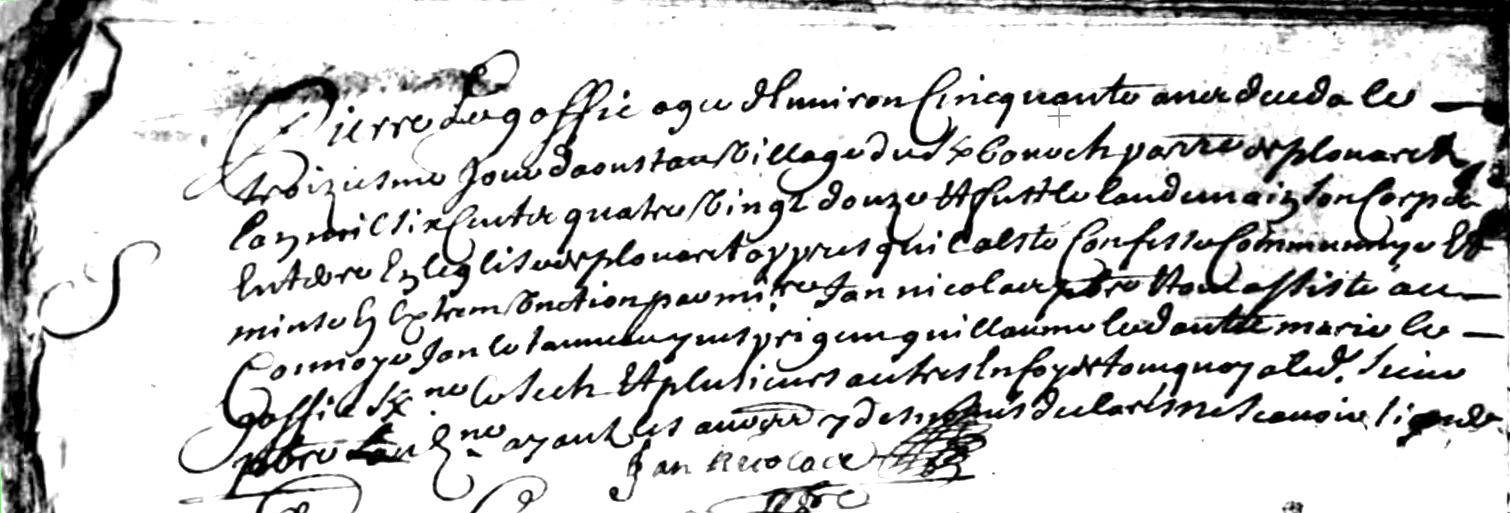 Pierre Le goffic age denviron Cincquante ans deceda le
troiziesme Jour daoust au Village du parrsse de plouaret
lan mil six Cents quatre Vingt douze Et fust le landemain son Corps
Enterre En leglise de plouaret appres quil a este Confesse Communnye Et
mins En Extrem Onction par mire Jan nicolas pbre Et ont assiste au
Connoye Jan le tanneur yves prigent guillaume le dantec marie le
goffic le tech Et plusieurs autres En foy de tout quoy a led. Sieur
pbre ayant les autres y desnommes declares ne scavoir signer
Jan Nicolas
pbre